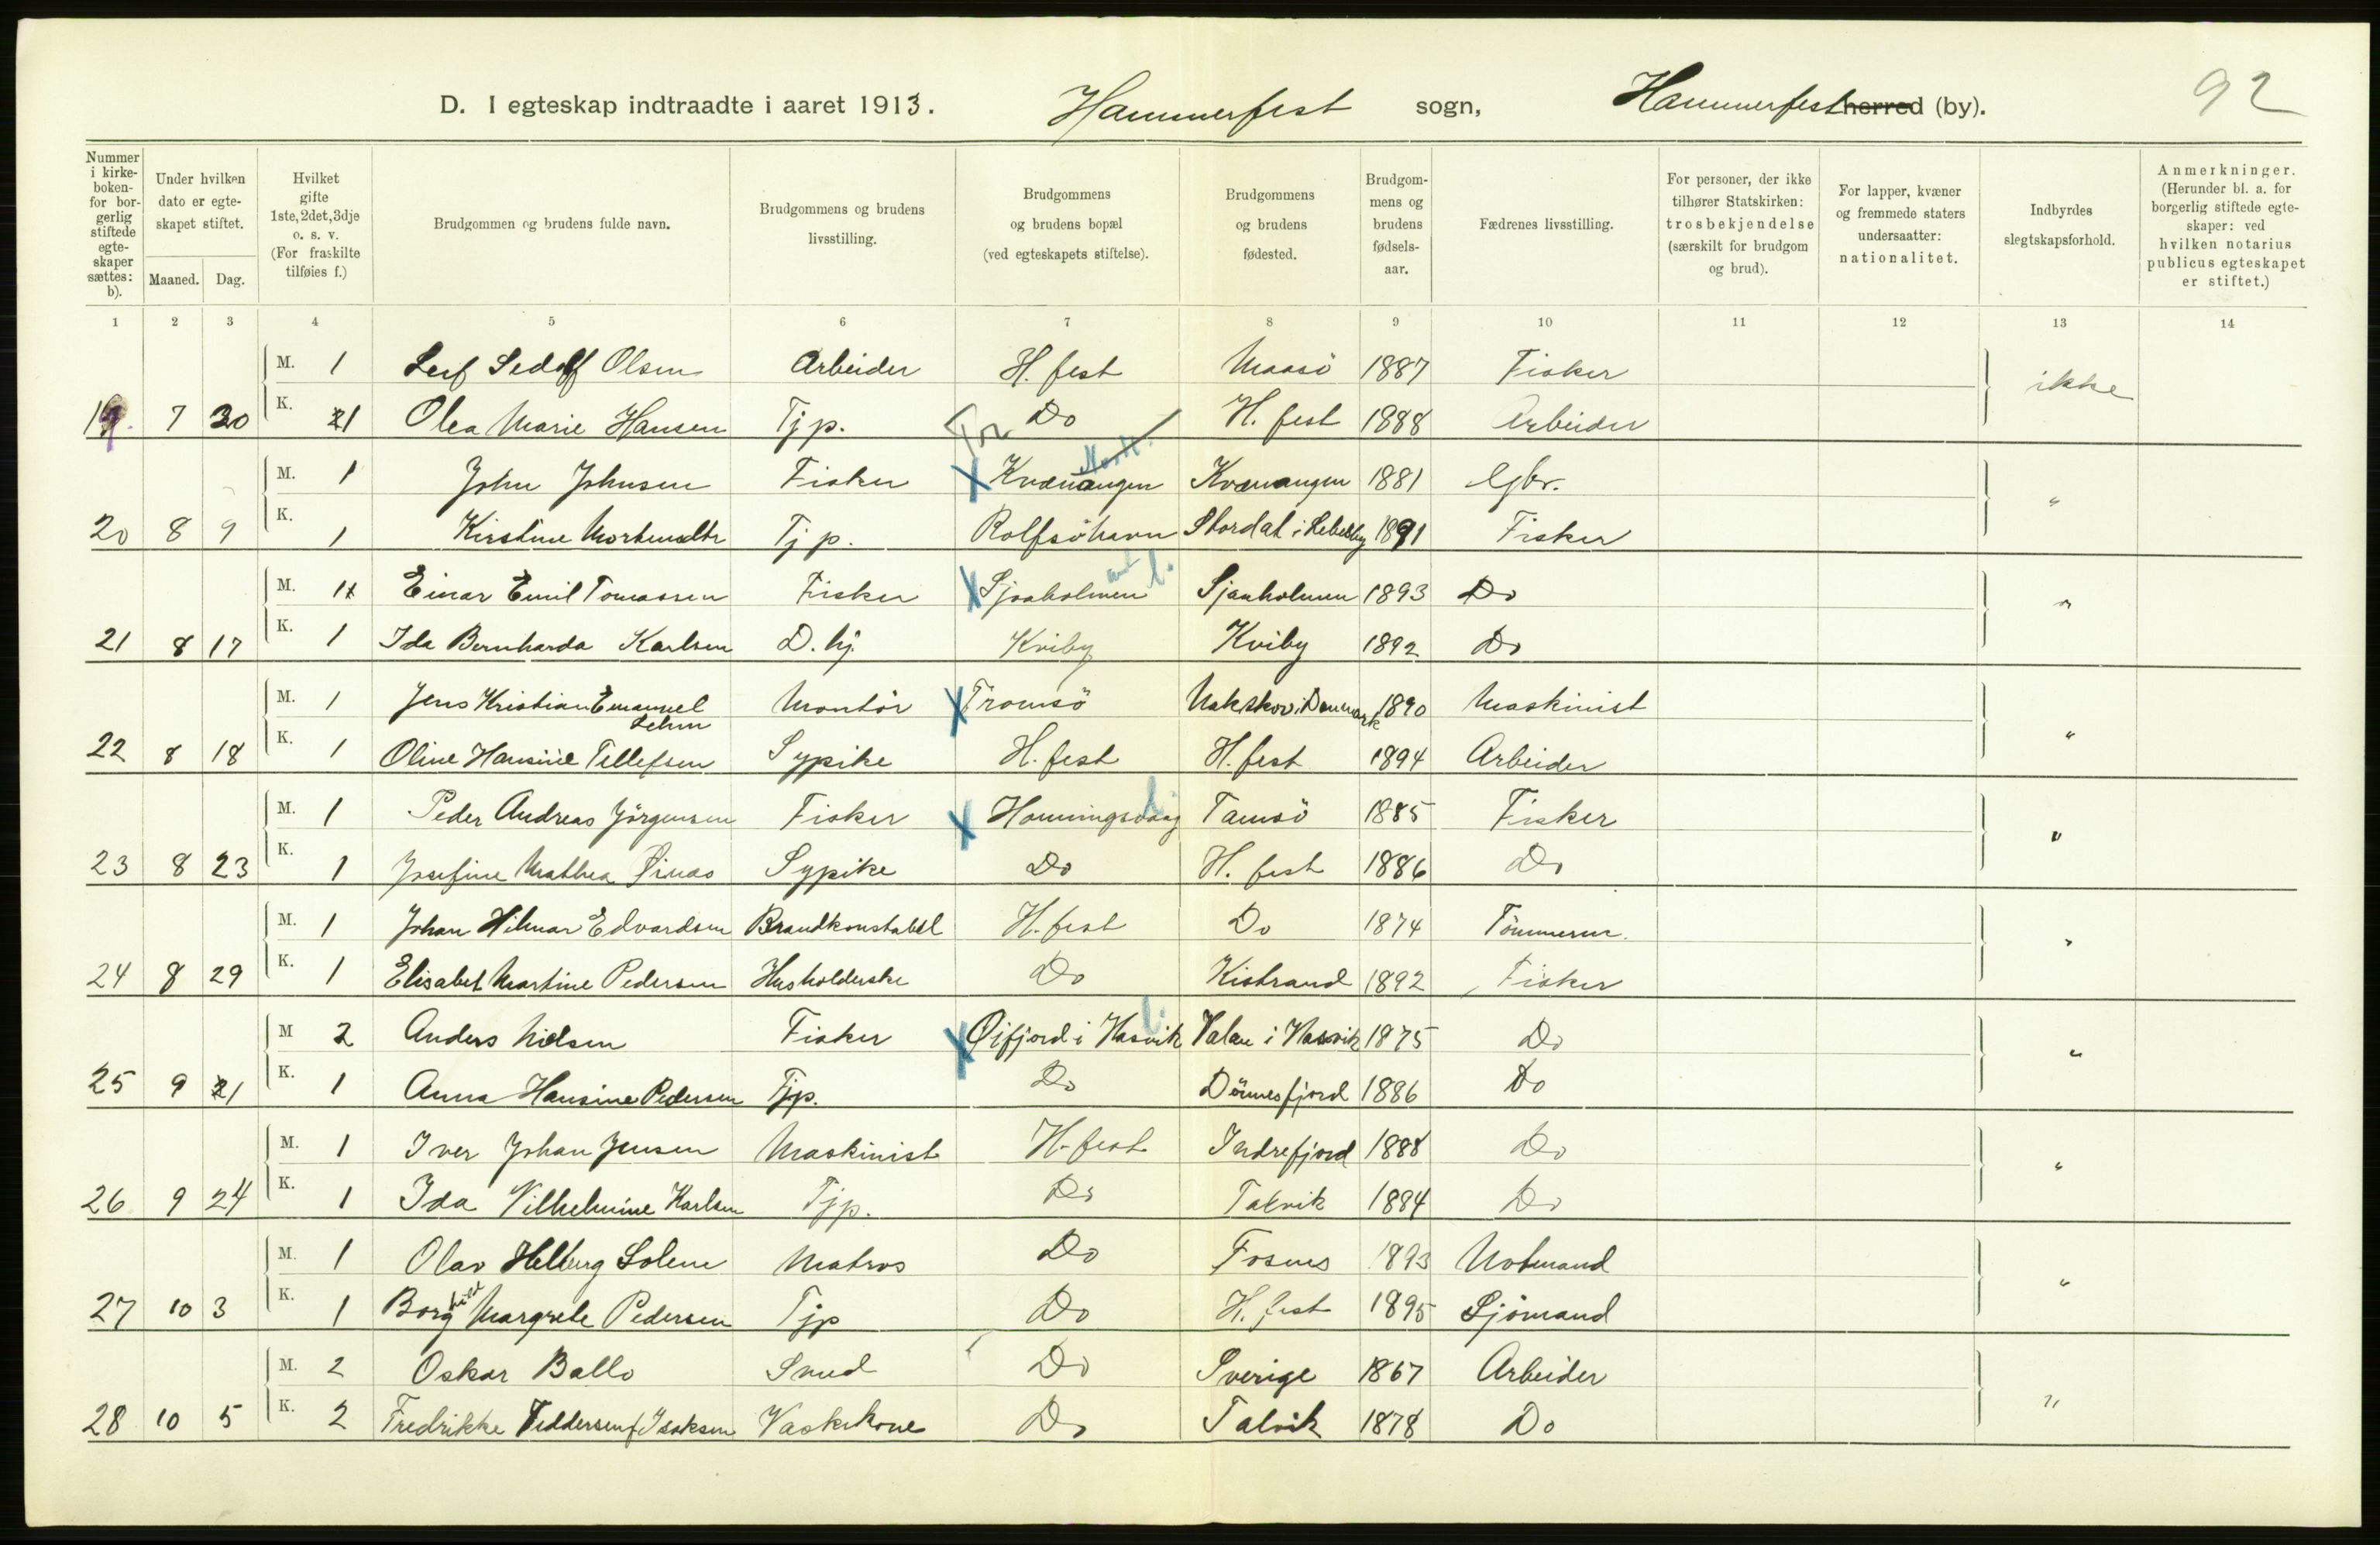 D. I egteskap indtraadte i aaret 1913. Hammerfest sogn, Hammerfest herred (by). 92
Nummer i kirkeboken- for borgerlig stiftede egteskaper sættes: b). Under hvilken dato er egteskapet stiftet. Maaned. Dag. Hvilket gifte 1ste, 2det, 3dje o. s. v. (For fraskilte tilføies f.) Brudgommen og brudens fulde navn. Brudgommens og brudens livsstilling. Brudgommens og brudens bopæl (ved egteskapets stiftelse). Brudgommens og brudens fødested. Brudgommens og brudens fødselsaar. Fædrenes livsstilling. For personer, der ikke tilhører Statskirken: trosbekjendelse (særskilt for brudgom og brud). For lapper, kvæner og fremmede staters undersaatter: nationalitet. Indbyrdes slegtskapsforhold. Anmerkninger. (Herunder bl. a. for borgerlig stiftede egteskaper: ved hvilken notarius publicus egteskapet er stiftet.)
1 2 3 4 5 6 7 8 9 10 11 12 13 14
M. 1 Leif Sedolf Olsen Arbeider H. fest Maasö 1887 Fisker ikke
19. 7 30 K. 1 Olea Marie Hansen Tjp. Do H. fest 1888 Arbeider
M. 1 John Johnsen Fisker X Kvænangen Kvænangen 1881 Gbr. "
20 8 9 K. 1 Kirstine Mortensdtr Tjp. Rolfsöhavn Stordal i Lebesby 1891 Fisker
M. 1 Einar Emil Tomassen Fisker X Sjaaholmen Sjaaholmen 1893 Do "
21 8 17 K. 1 Ida Bernharda Karlsen D. hj. Kviby Kviby 1892 Do
M. 1 Jens Kristian Emanuel Lehm Montör X Tromsö Nakskov i Danmark 1890 Maskinist "
22 8 18 K. 1 Oline Hansine Tellefsen Sypike H. fest H. fest 1894 Arbeider
M. 1 Peder Andreas Jörgensen Fisker X Honningsvaag Tamsö 1885 Fisker "
23 8 23 K. 1 Josefine Mathea Öinas Sypike Do H. fest 1886 Do
M. 1 Johan Hilmar Edvardsen Brandkonstabel H. fest Do 1874 Tömmerm. "
24 8 29 K. 1 Elisabet Martine Pedersen Husholderske Do Kistrand 1892 Fisker
M 2 Anders Nielsen Fisker X Øifjord i Hasvik Valan i Hasvik 1875 Do "
25 9 21 K. 1 Anna Hansine Pedersen Tjp. Do Dönnesfjord 1886 Do
M. 1 Iver Johan Jensen Maskinist H. fest Indrefjord 1888 Do "
26 9 24 K. 1 Ida Vilhelmine Karlsen Tjp. Do Talvik 1894 Do
M. 1 Olav Helberg Solem Matros Do Fosnes 1893 Notmand "
27 10 3 K. 1 Borghild Margrete Pedersen Tjp Do H. fest 1895 Sjömand
M. 2 Oskar Ballo Smed Do Sverige 1867 Arbeider "
28 10 5 K. 2 Fredrikke Feddersen f. Isaksen Vaskekone Do Talvik 1878 Do